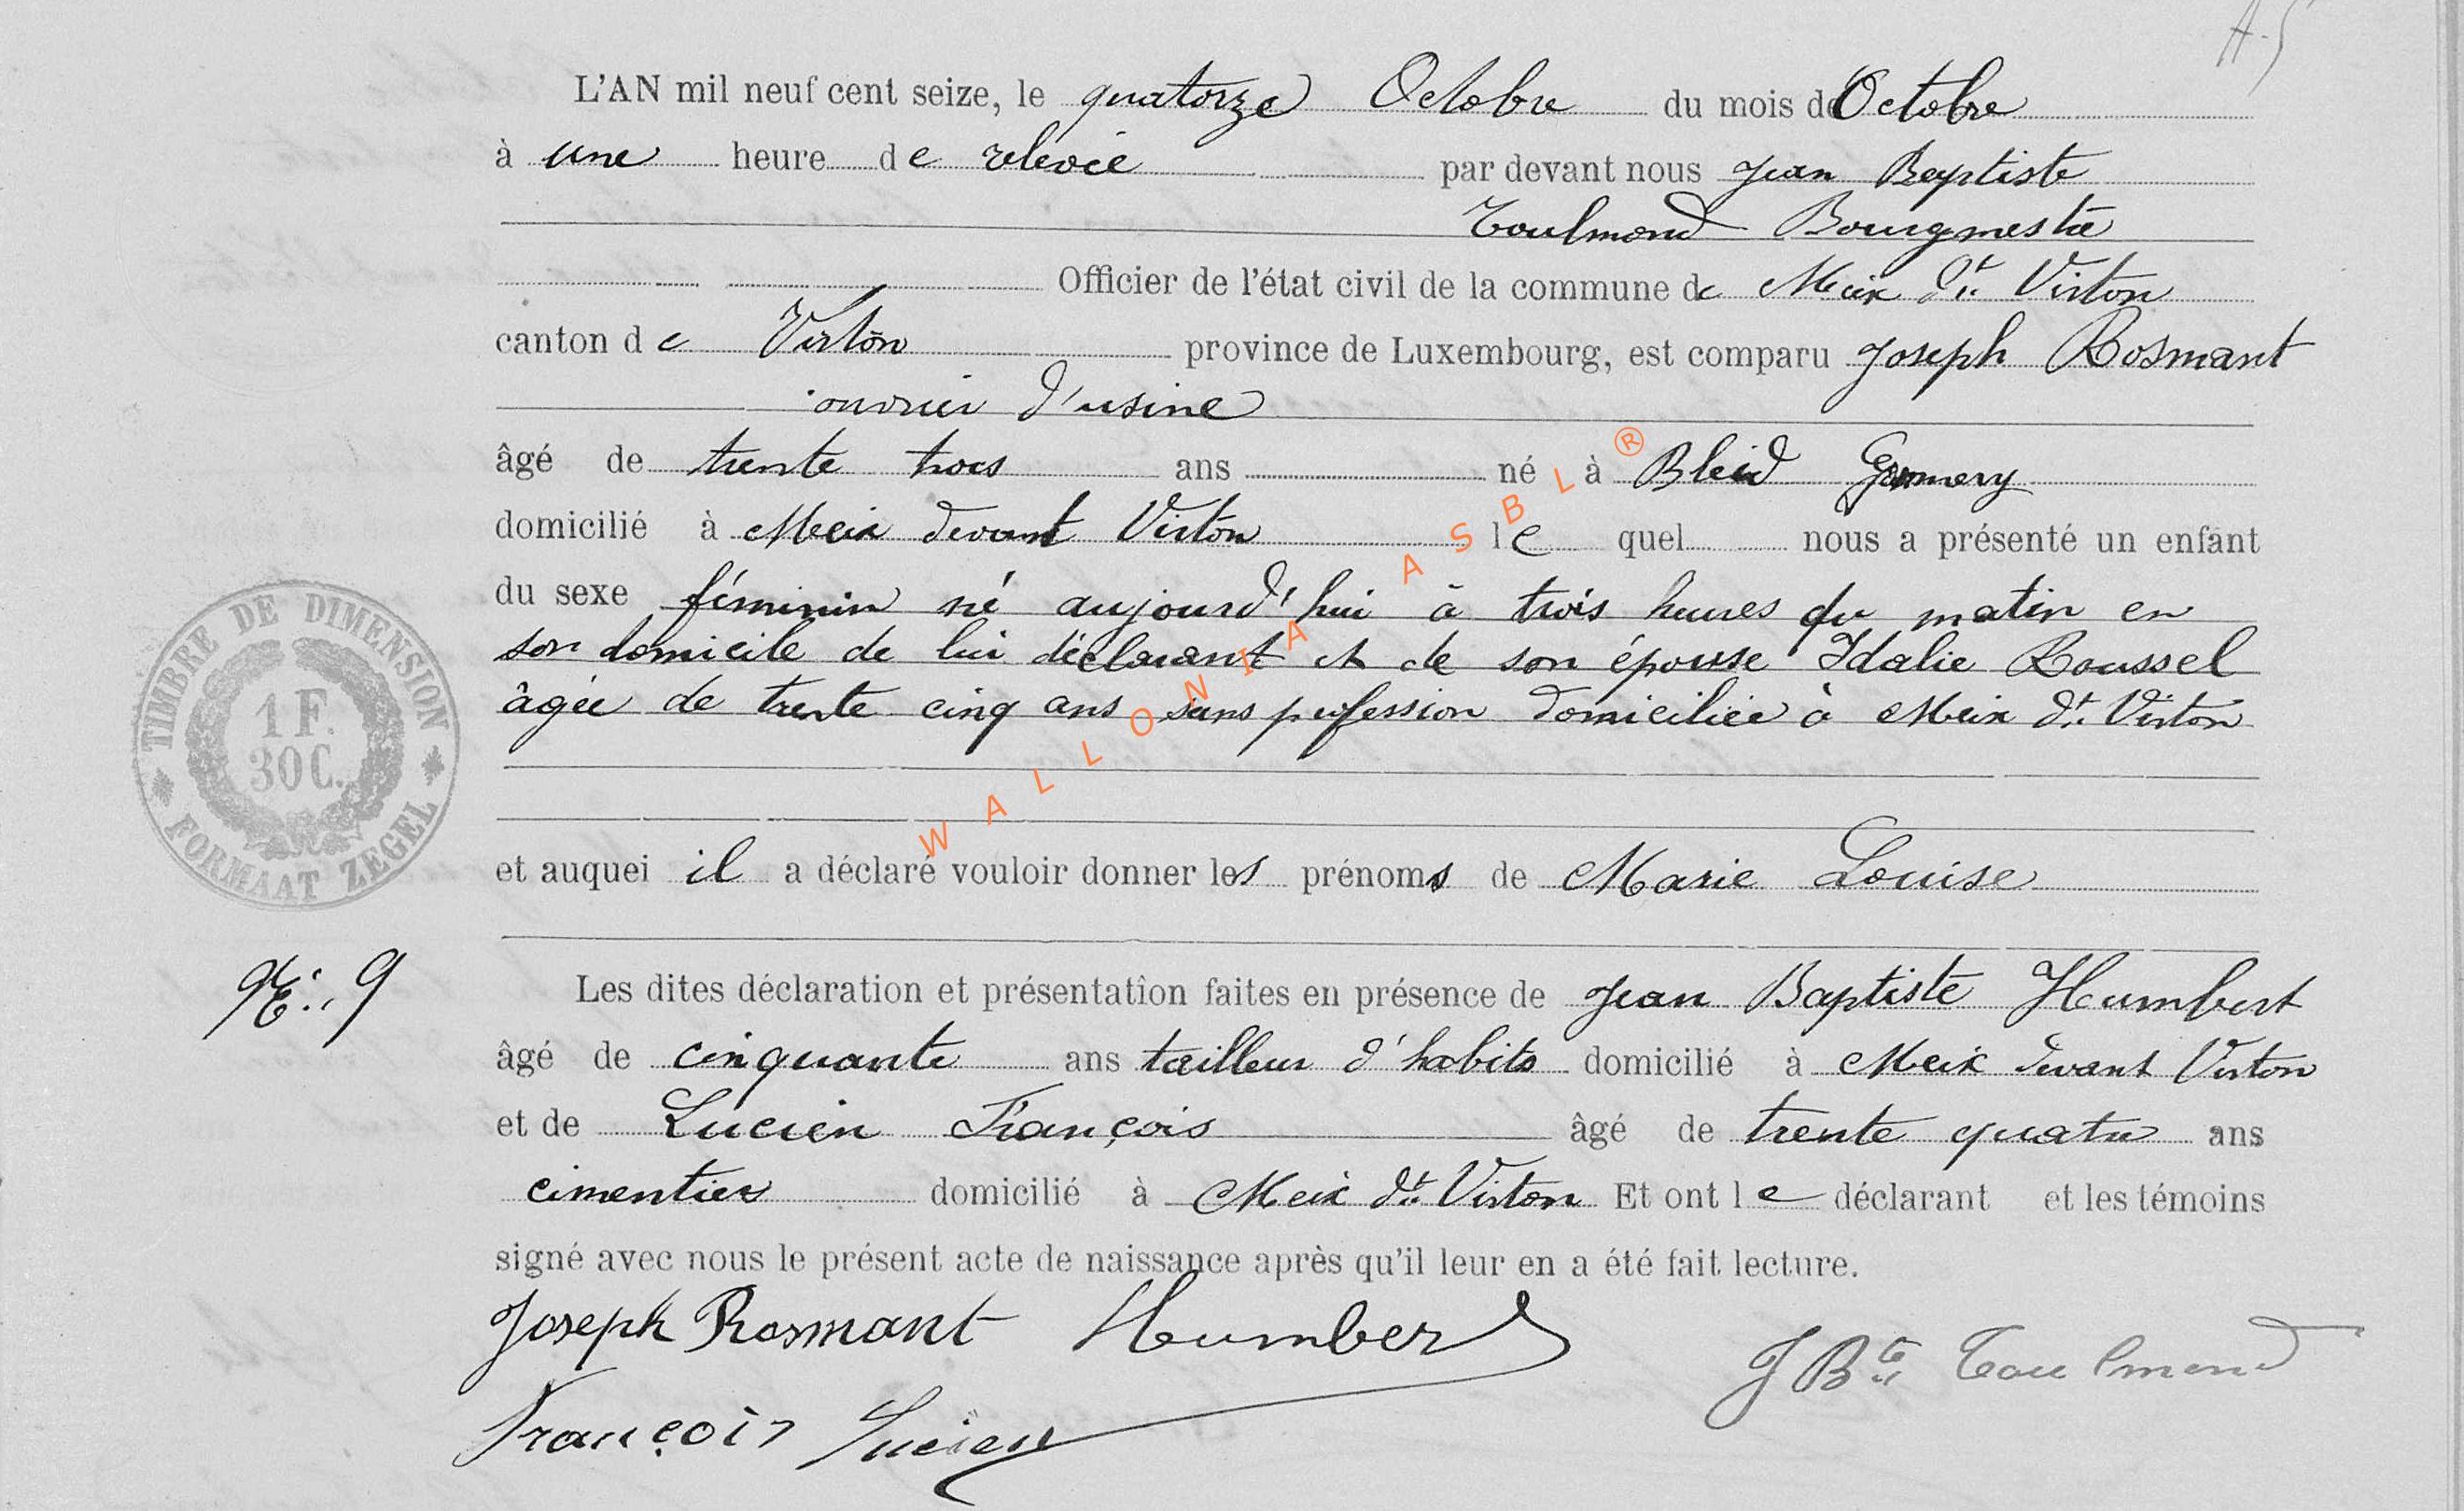 A. 5
L'AN mil neuf cent seize, le quatorze Octobre du mois de Octobre
à une heure de relevée par devant nous Jean Baptiste
Toulmond Bourgmestre
Officier de l'état civil de la commune de Meix dt Virton
canton de Virton province de Luxembourg, est comparu Joseph Rosmant
ouvrier d'usine
âgé de trente trois ans né à Bleid Gomery
domicilié à Meix devant Virton le quel nous a présenté un enfant
du sexe féminin né aujourd'hui à trois heures du matin en
son domicile de lui déclarant et de son épouse Idalie Roussel
âgée de trente cinq ans sans profession domiciliée à Meix dt Virton
et auquel il a déclaré vouloir donner les prénoms de Marie Louise
TIMBRE DE DIMENSION
1 F.
30 C.
FORMAAT ZEGEL
WALLONIA ASBL ®
N°. 9
Les dites déclaration et présentation faites en présence de Jean Baptiste Humbert
âgé de cinquante ans tailleur d'habits domicilié à Meix devant Virton
et de Lucien François âgé de trente quatre ans
cimentier domicilié à Meix dt Virton Et ont le déclarant et les témoins
signé avec nous le présent acte de naissance après qu'il leur en a été fait lecture.
Joseph Rosmant Humbert
J Bte Toulmond
François Lucien